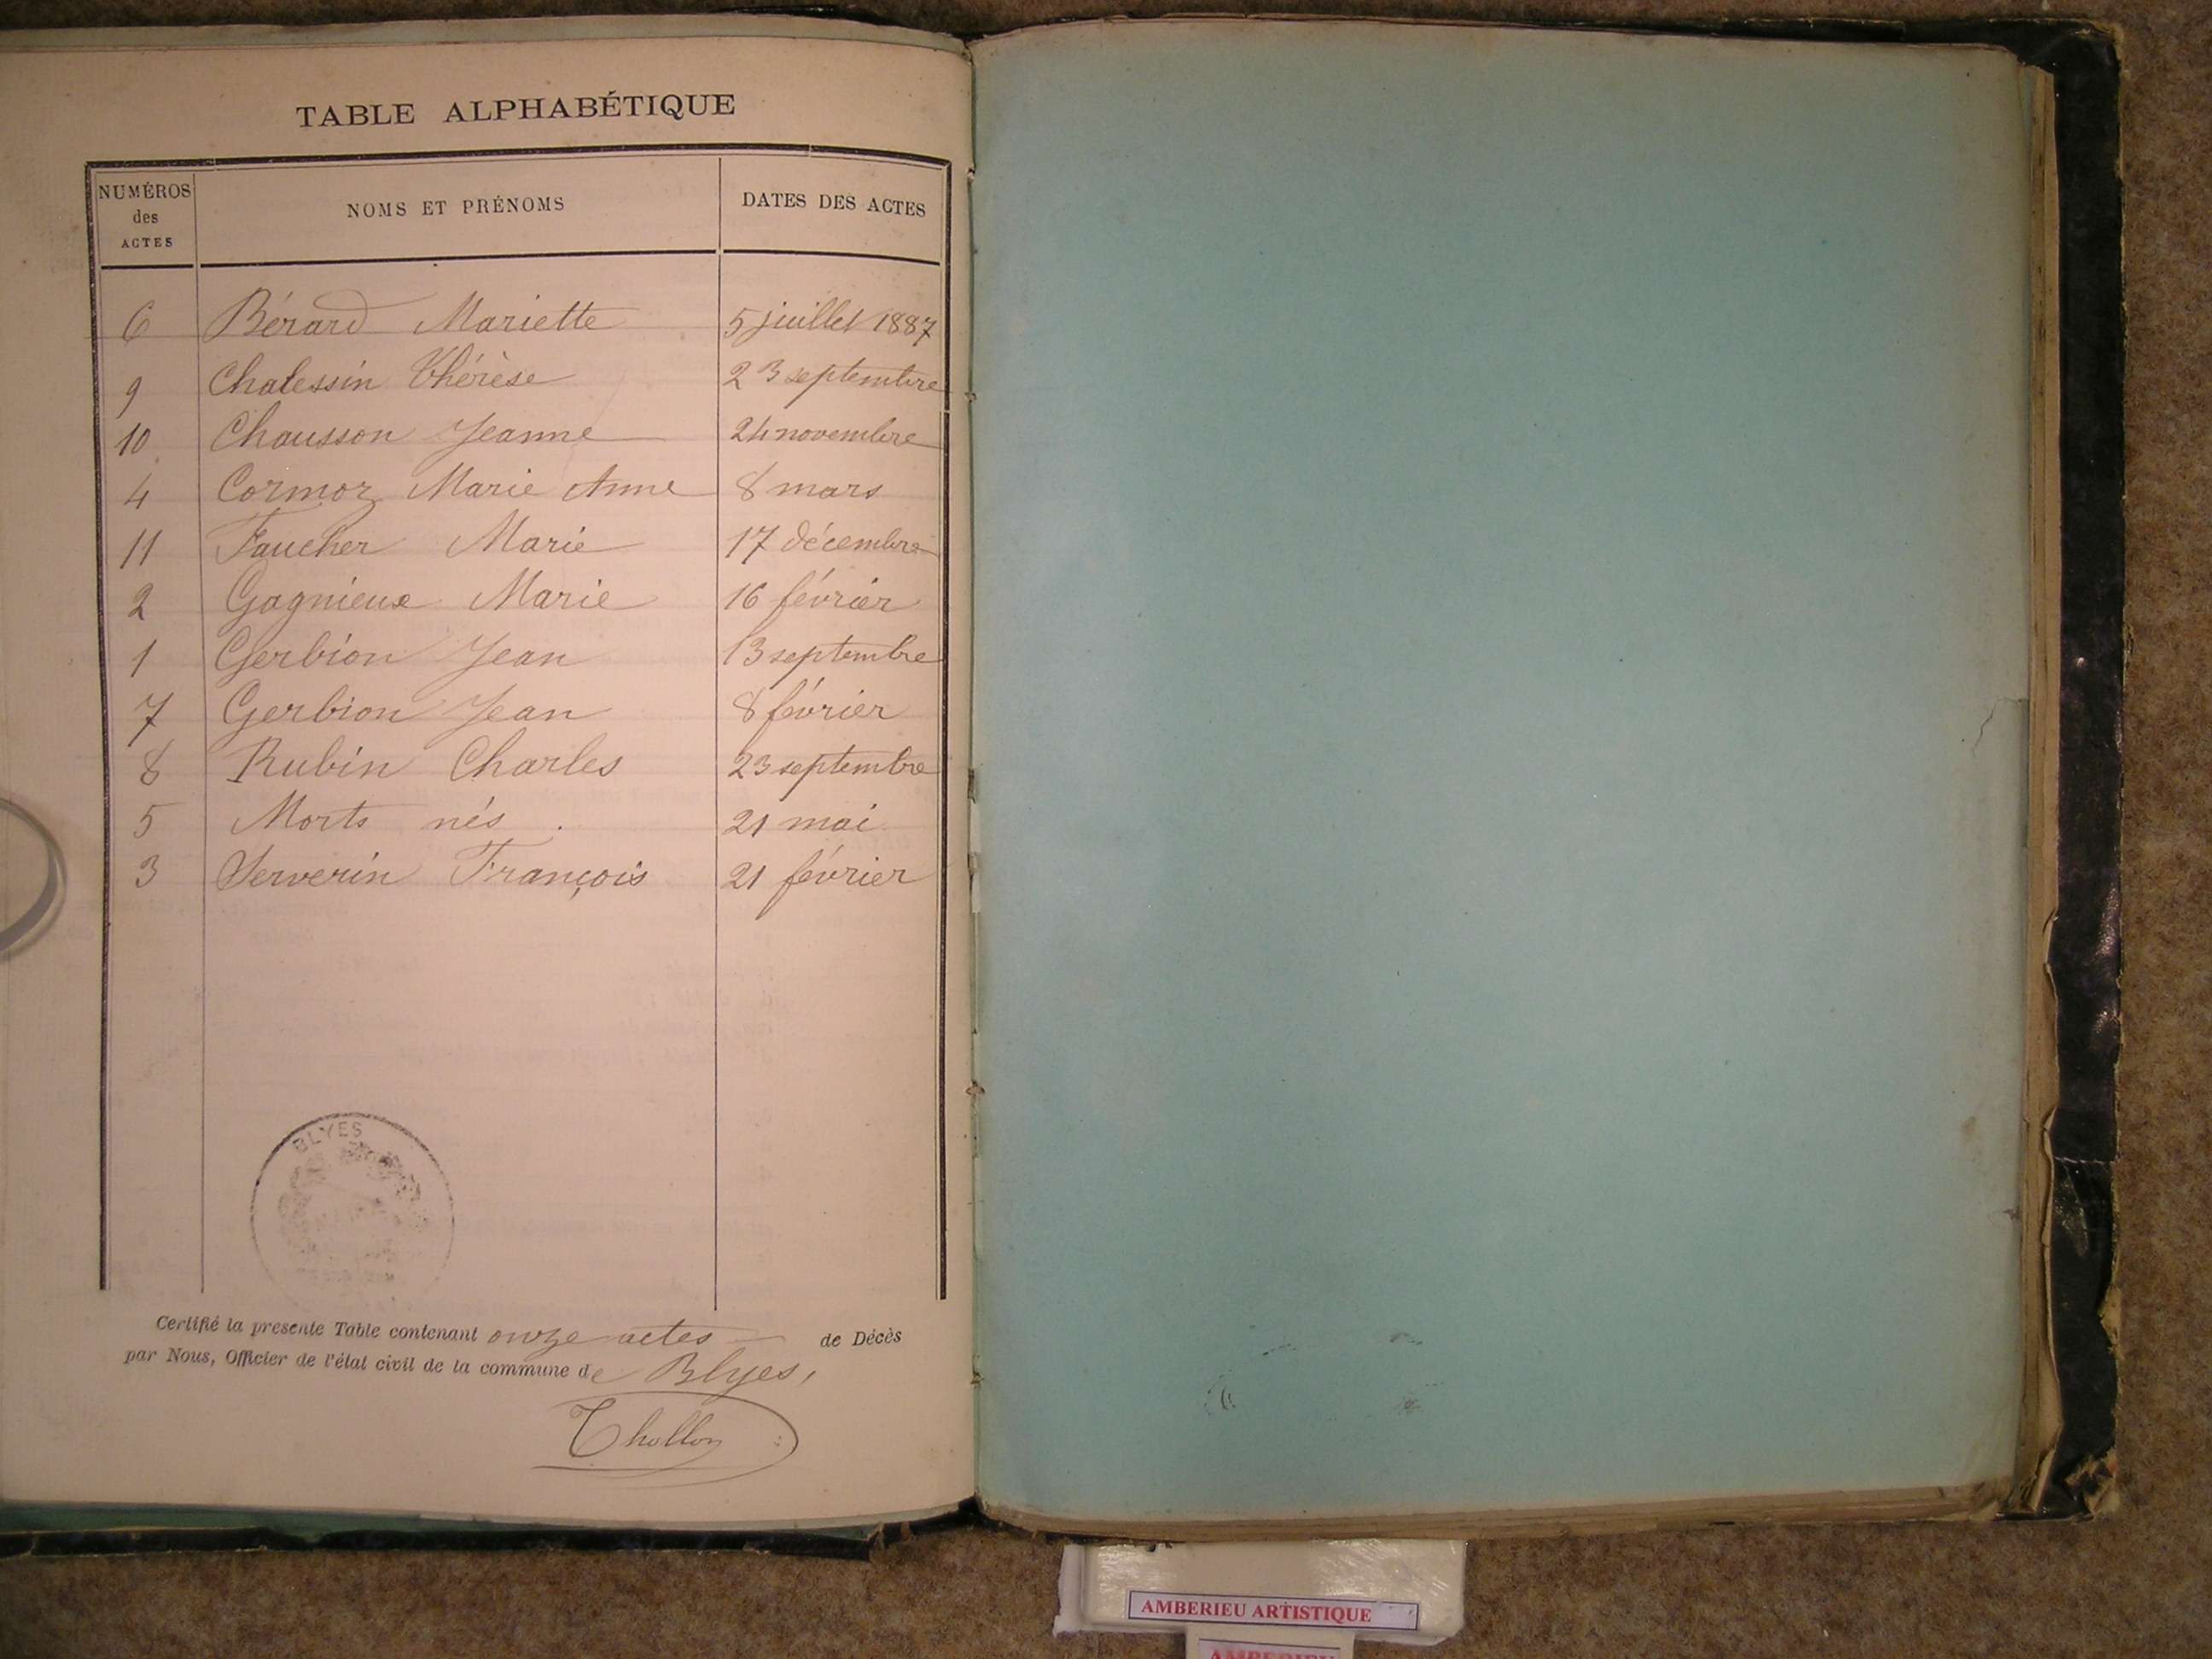 TABLE ALPHABÉTIQUE
NUMÉROS des ACTES NOMS ET PRÉNOMS DATES DES ACTES
6 Bérard Mariette 5 juillet 1887
9 Chalessin Thérèse 23 septembre
10 Chausson Jeanne 24 novembre
4 Cormoz Marie Anne 8 mars
11 Faucher Marie 17 décembre
2 Gagnieux Marie 16 février
1 Gerbion Jean 13 septembre
7 Gerbion Jean 8 février
8 Rubin Charles 23 septembre
5 Morts nés . 21 mai
3 Serverin François 21 février
BLYES
Certifié la presente Table contenant onze actes de Décès
par Nous, Officier de l'état civil de la commune de Blyes,
Thollon
AMBERIEU ARTISTIQUE
AMBERIEU